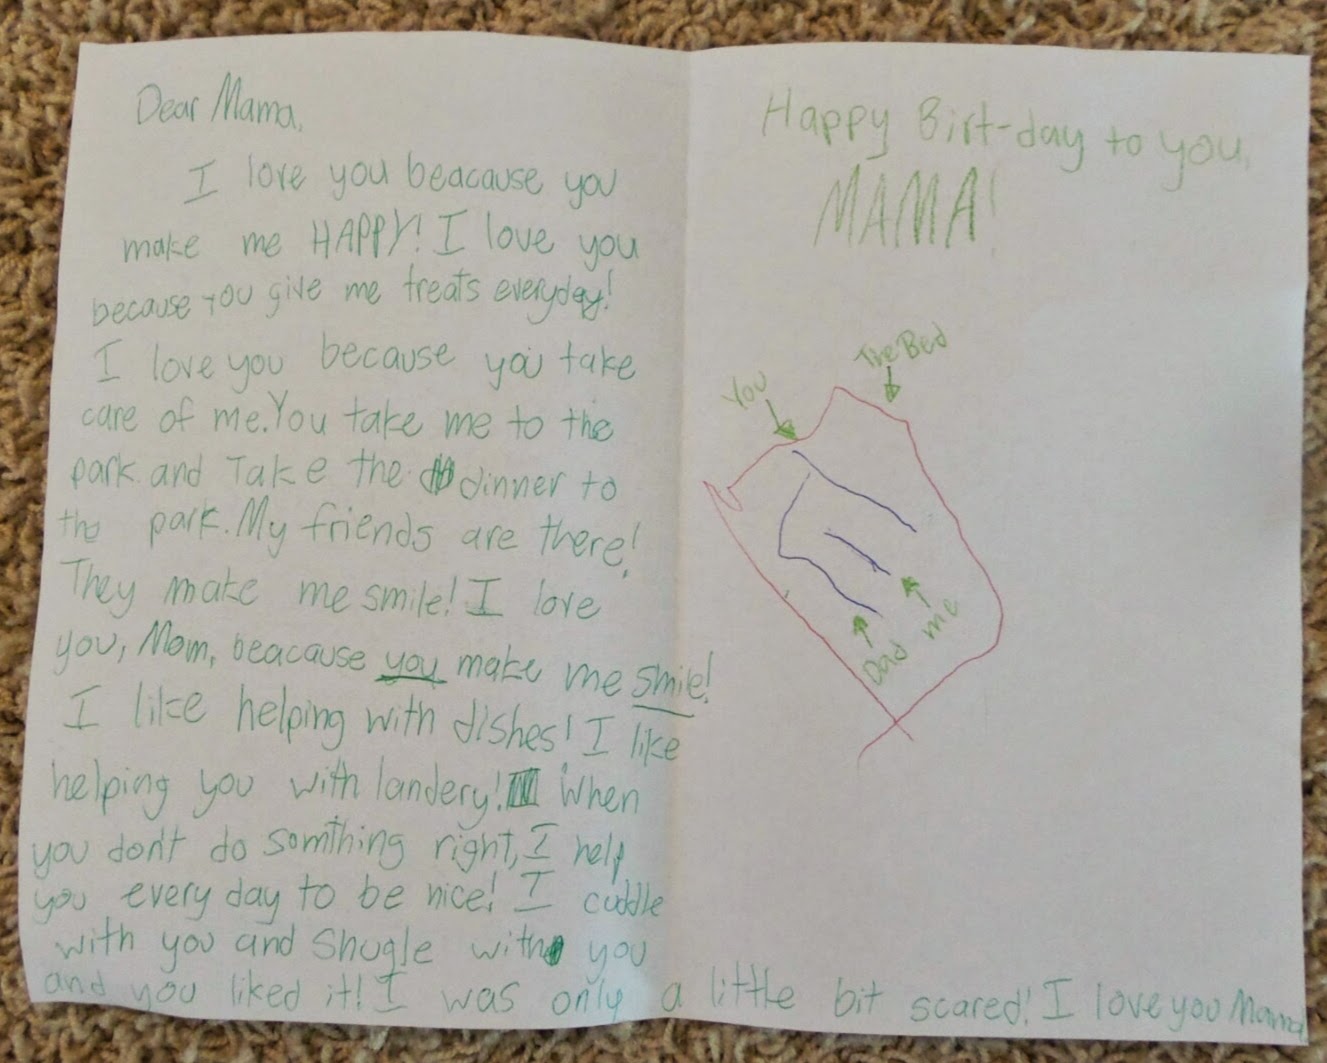 Dear Mama,
I love you beacause you
make me HAPPY! I love you
because you give me treats everyday!
I love you because you take
care of me. You take me to the
park and Take the dinner to
the park. My friends are there!
They make me smile! I love
you, Mom, beacause you make me smile!
I like helping with dishes! I like
helping you with landery! When
you don't do somthing right, I help
you every day to be nice! I cuddle
with you and Shugle with you
and you liked it! I was only a little bit scared! I love you Mama
Happy Birt-day to you,
MAMA!
The Bed
You
me
Dad